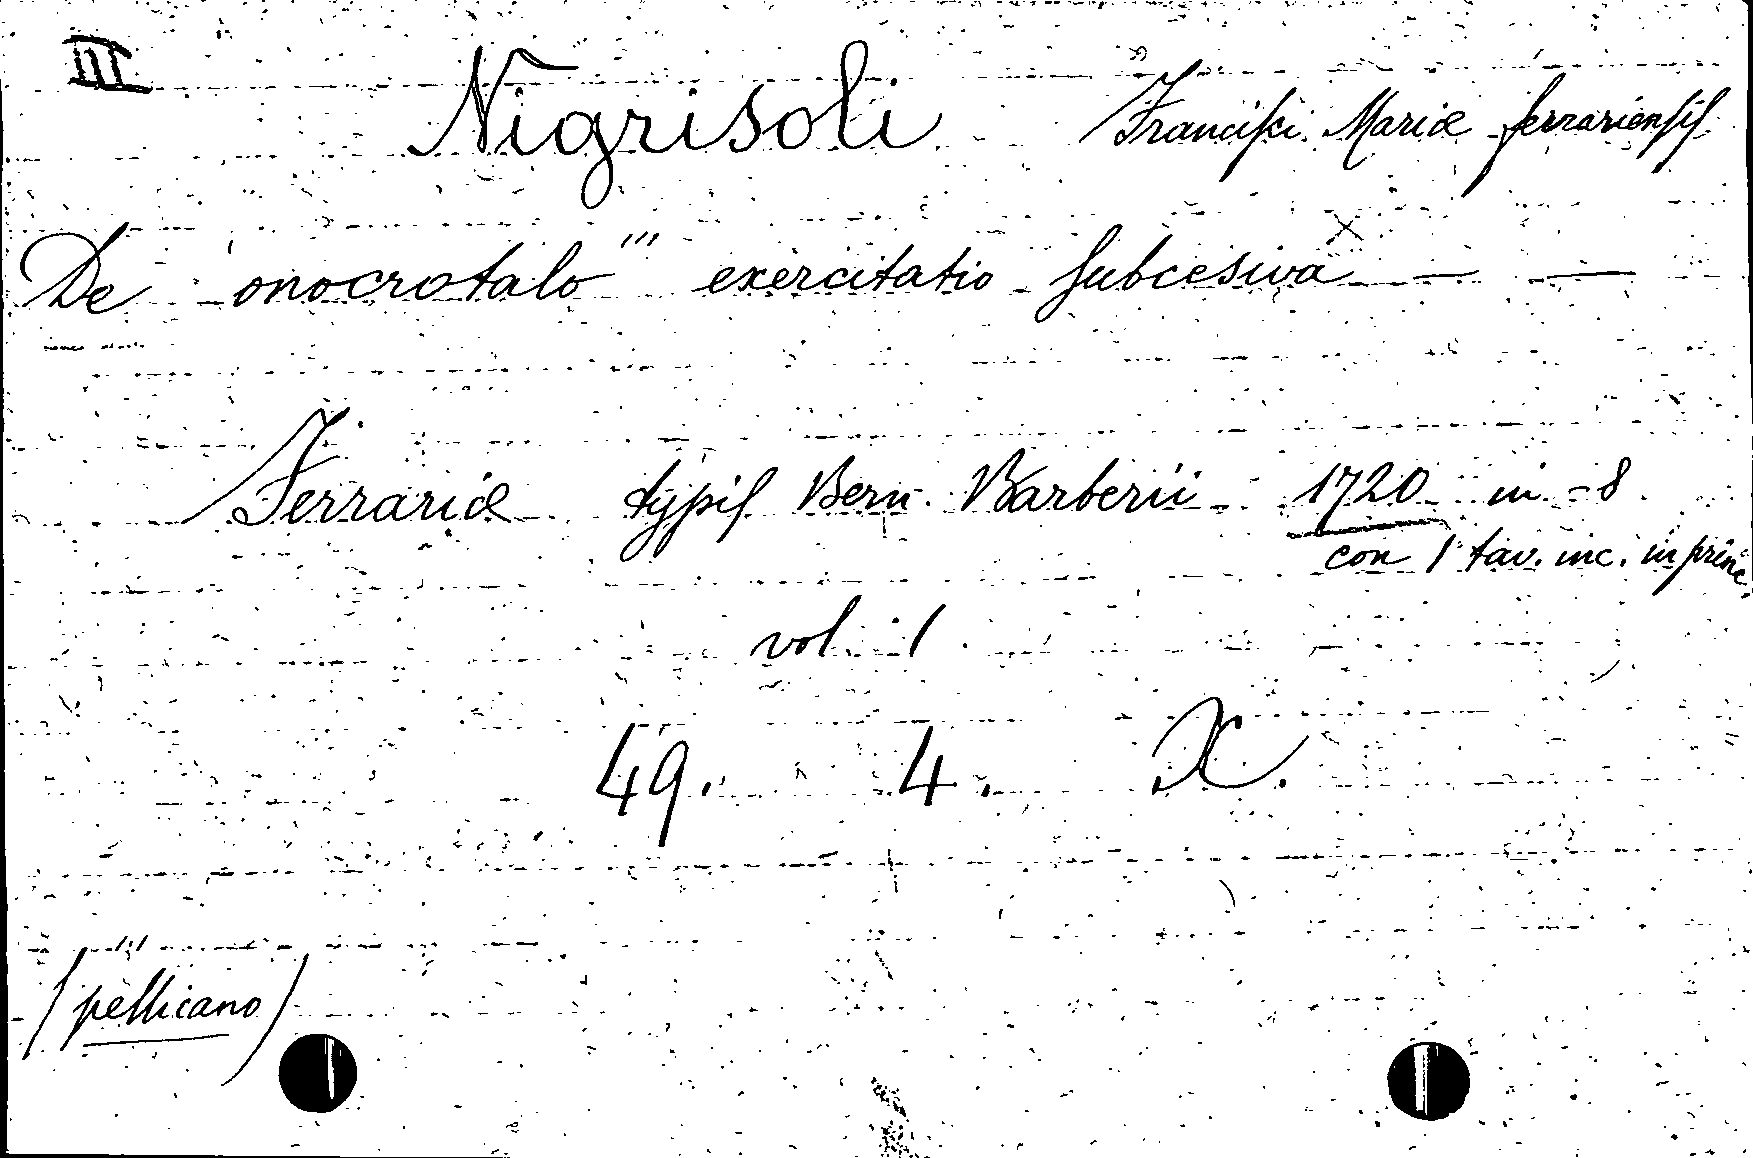 III
Nigrisoli Francisci Mariæ ferrariensis
De onocrotalo "' exercitatio subcesiva X — —
Ferrariæ typis Bern. Barberii 1720 in - 8
con 1 tav. inc. in princ.
vol. 1
49. 4. X.
(pellicano)